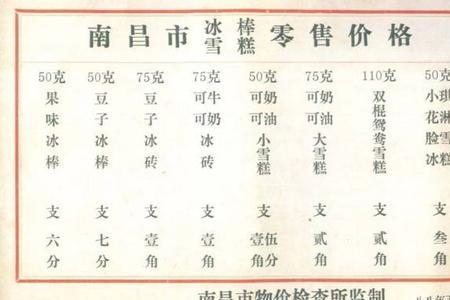 南昌市冰棒雪糕零售价格
50克 50克 75克 75克 50克 75克 110克 50克
果味冰棒 支 六分
豆子冰棒 支 七分
豆子冰砖 支 壹角
可可牛奶冰砖 支 壹角
可可奶油小雪糕 支 壹角伍分
可可奶油大雪糕 支 贰角
双棍鸳鸯雪糕 支 贰角
小花脸冰淇淋雪糕 支 叁角
南昌市物价检查所监制